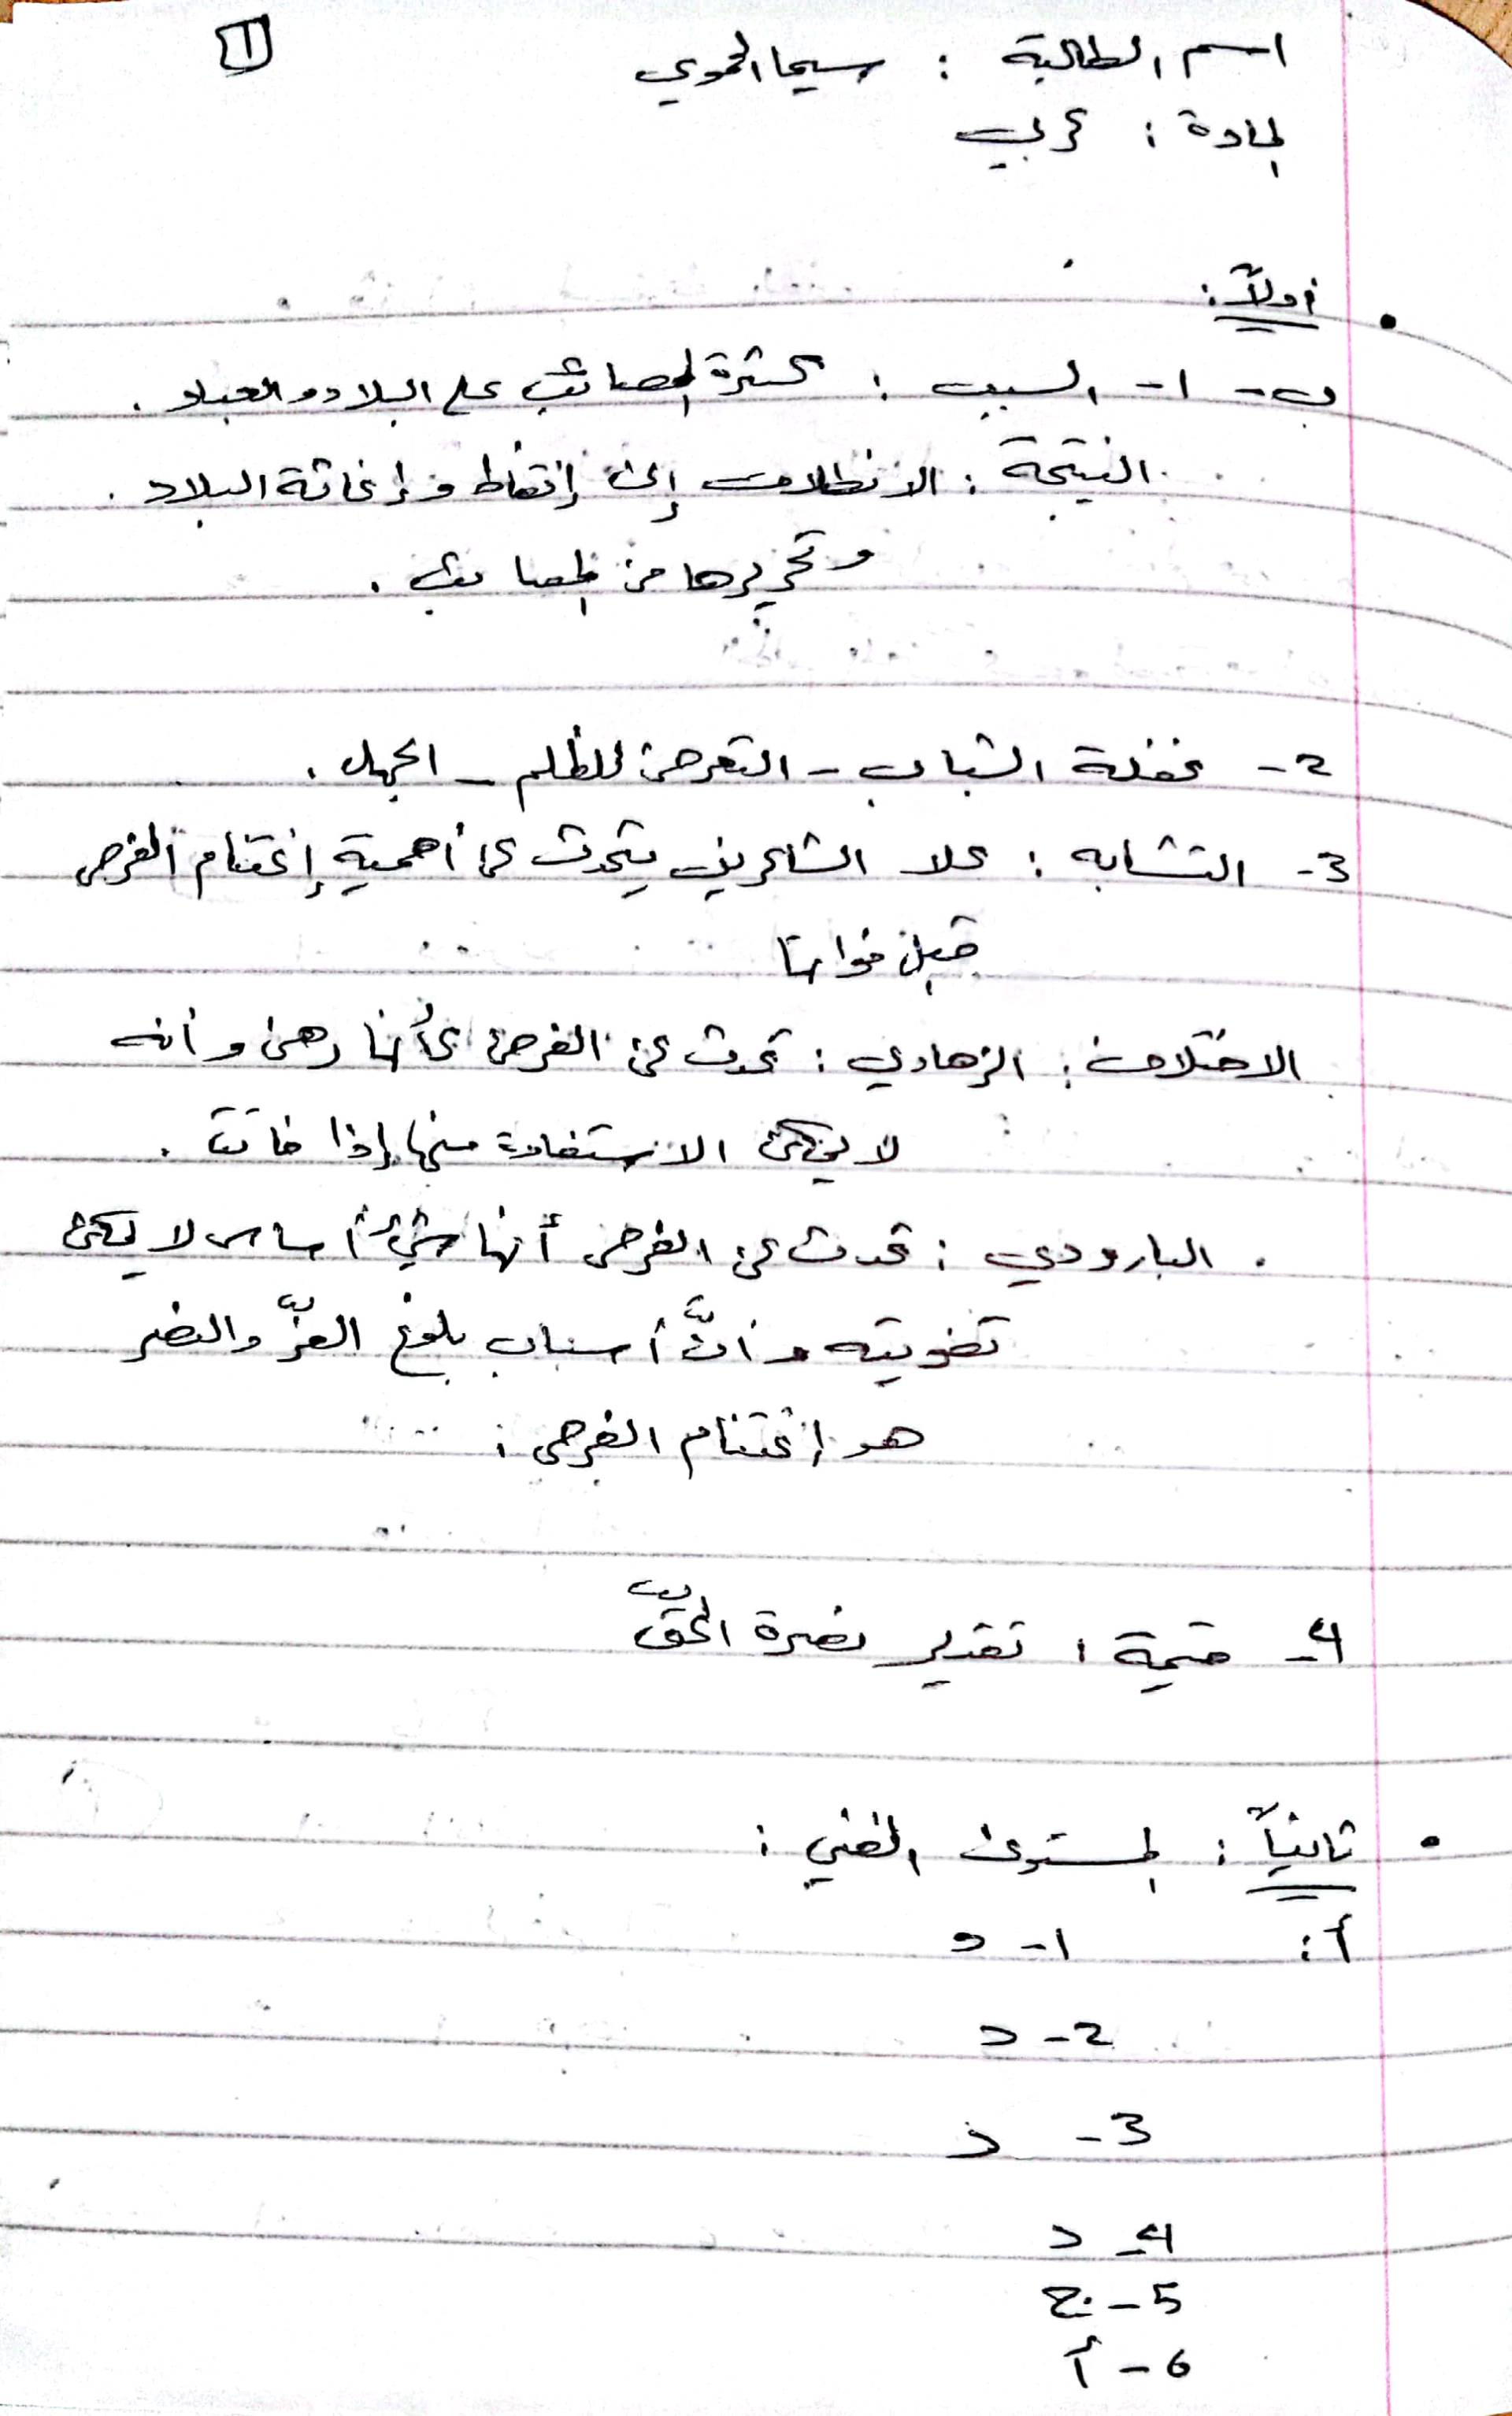 1
اسم الطالبة : سيما الحموي
المادة : عربي
أولاً :
ب - 1 - السبب : كثرة المصائب على البلاد و العباد .
النتيجة : الانطلاق إلى إيقاظ و إغاثة البلاد .
و تحريرها من المصائب .
2 - غفلة الشباب - التعرض للظلم - الجهل .
3 - التشابه : كلا الشاعرين يتحدث عن أهمية إغتنام الفرص
قبل فواتها
الاختلاف : الزهاوي : تحدث عن الفرص كأنها رهن و أنه
لا يمكن الاستفادة منها إذا فاتت .
البارودي : تحدث عن الفرص أنها شيء أساس لا يمكن
تفويته و أنَّ أسباب بلوغ العزّ والنصر
هو إغتنام الفرص :
4 - قيمة : تقدير نصرة الحقّ
ثانياً : المستوى الفني :
أ : 1 - د
2 - د
3 - د
4 - د
5 - ج
6 - أ